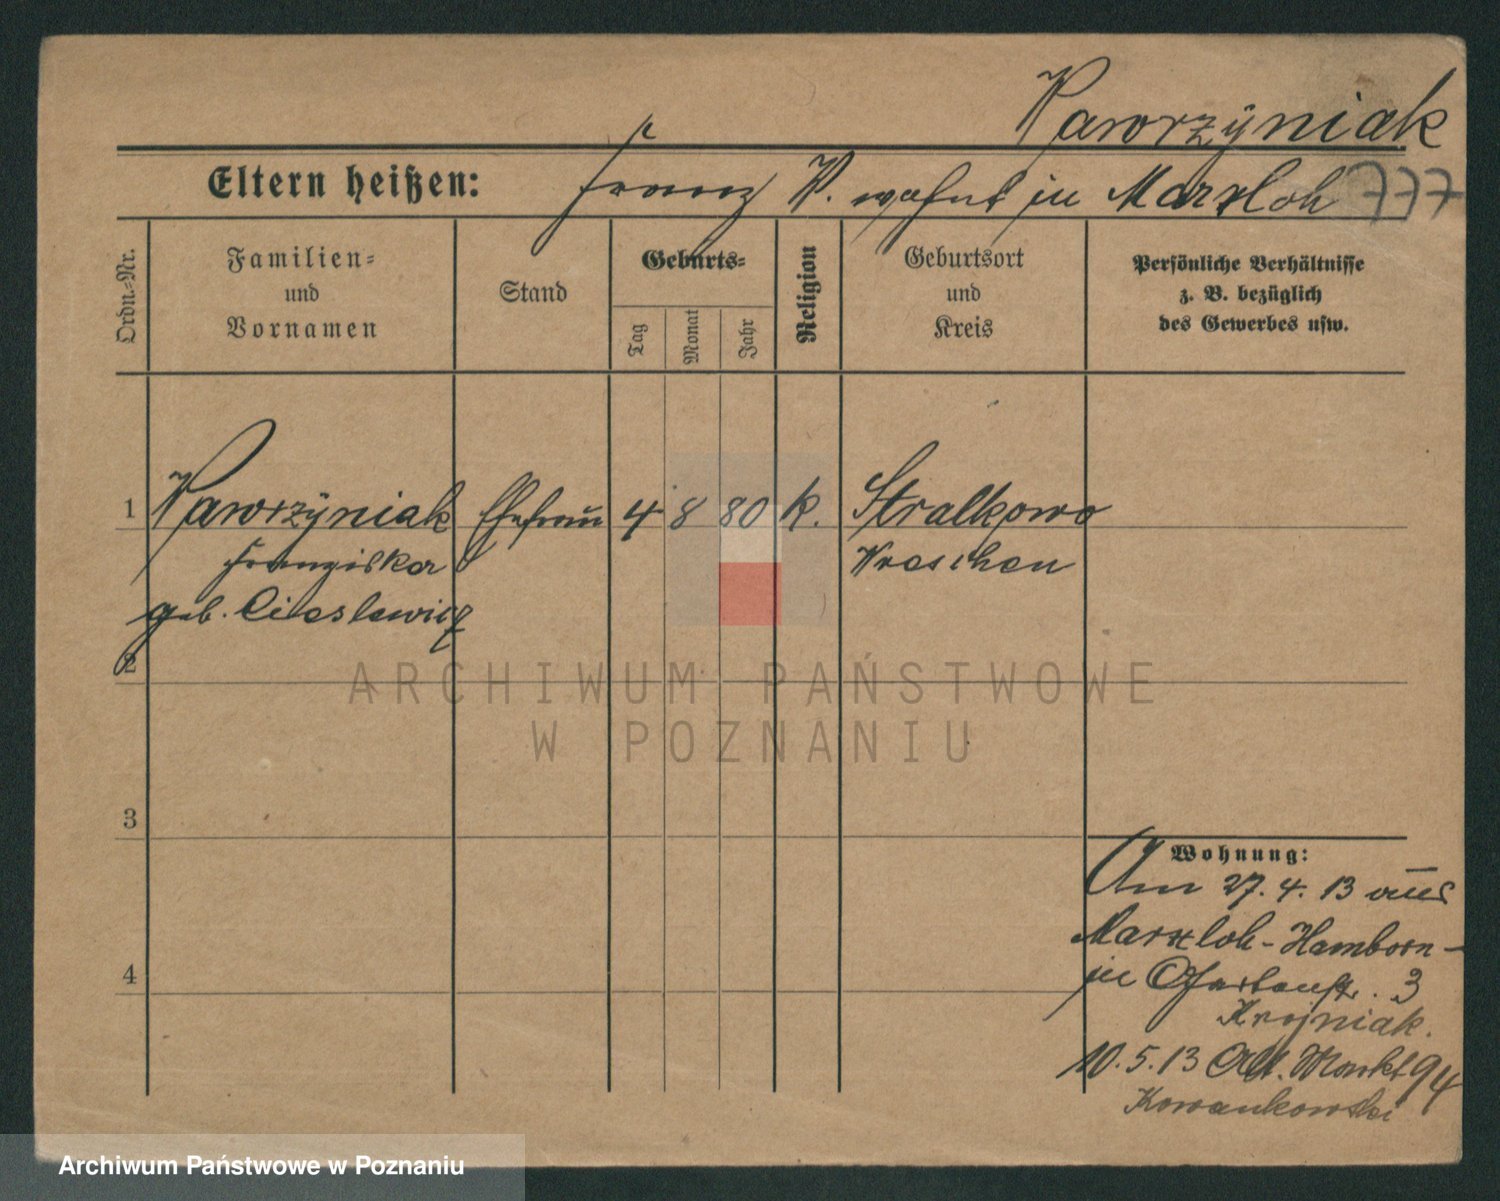 Wawrzÿniak
Eltern heißen: Franz W. wohnt in Marxloh 777
Ordn.-Nr.
Familien-
und
Vornamen
Stand
Geburts-
Tag
Monat
Jahr
Religion
Geburtsort
und
Kreis
Persönliche Verhältnisse
z. B. bezüglich
des Gewerbes usw.
1 Wawrzÿniak Ehefrau 4 8 80 k. Stralkowo
Franziska Wreschen
geb. Cieslewicz
2
ARCHIWUM PAŃSTWOWE
W POZNANIU
3
Wohnung:
Am 27. 4. 13 aus
Marxloh-Hamborn-
in 3
4
10. 5. 13 Alt. Markt 94
Kowankowski
Archiwum Państwowe w Poznaniu